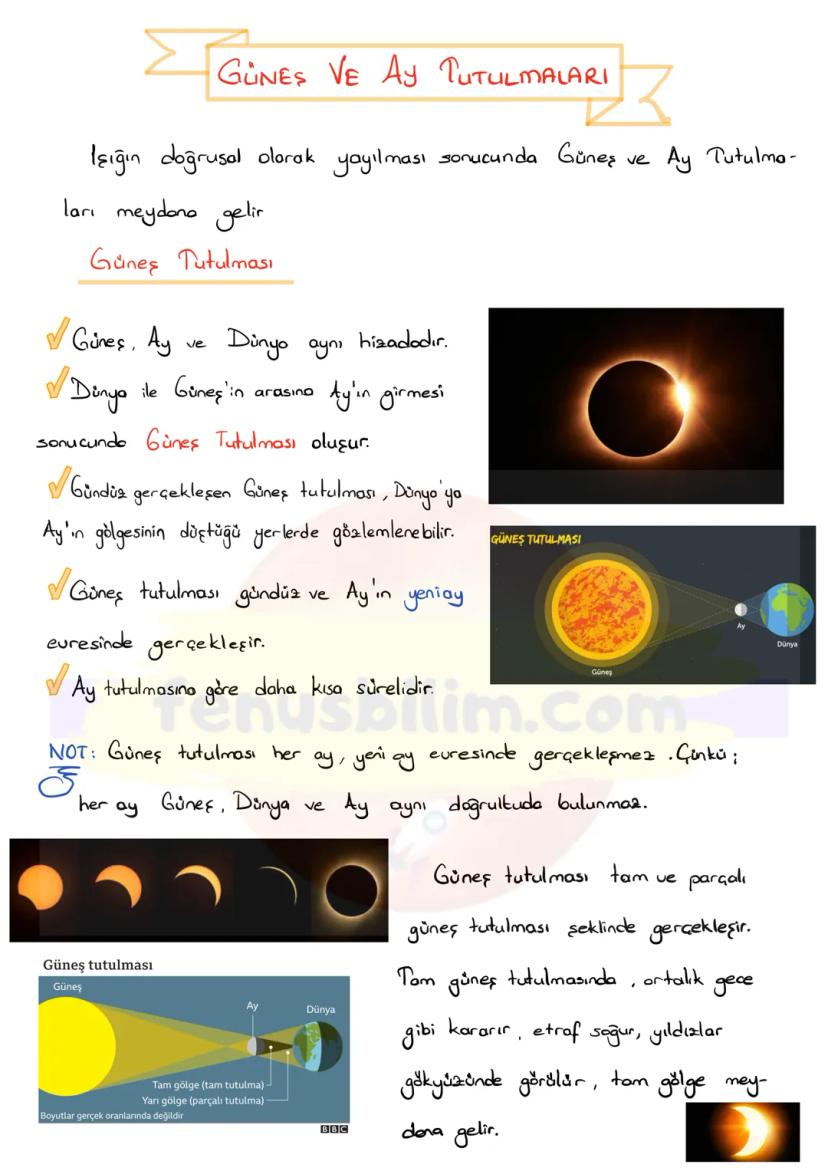 GÜNEŞ VE AY TUTULMALARI
Işığın doğrusal olarak yayılması sonucunda Güneş ve Ay Tutulma-
ları meydana gelir
Güneş Tutulması
Güneş, Ay ve Dünya aynı hizadadır.
Dünya ile Güneş'in arasına Ay'ın girmesi
sonucunda Güneş Tutulması oluşur.
Gündüz gerçekleşen Güneş tutulması, Dünya'ya
Ay'ın gölgesinin düştüğü yerlerde gözlemlenebilir.
Güneş tutulması gündüz ve Ay'ın yeniay
evresinde gerçekleşir.
Ay tutulmasına göre daha kısa sürelidir.
GÜNEŞ TUTULMASI
Ay
Dünya
Güneş
fenusbilim.com
NOT: Güneş tutulması her ay, yeni ay evresinde gerçekleşmez. Çünkü;
her ay Güneş, Dünya ve Ay aynı doğrultuda bulunmaz.
Güneş tutulması tam ve parçalı
güneş tutulması şeklinde gerçekleşir.
Tam güneş tutulmasında, ortalık gece
gibi kararır, etraf soğur, yıldızlar
gökyüzünde görülür, tam gölge mey-
dana gelir.
Güneş tutulması
Güneş
Ay
Dünya
Tam gölge (tam tutulma)
Yarı gölge (parçalı tutulma)
Boyutlar gerçek oranlarında değildir
BBC